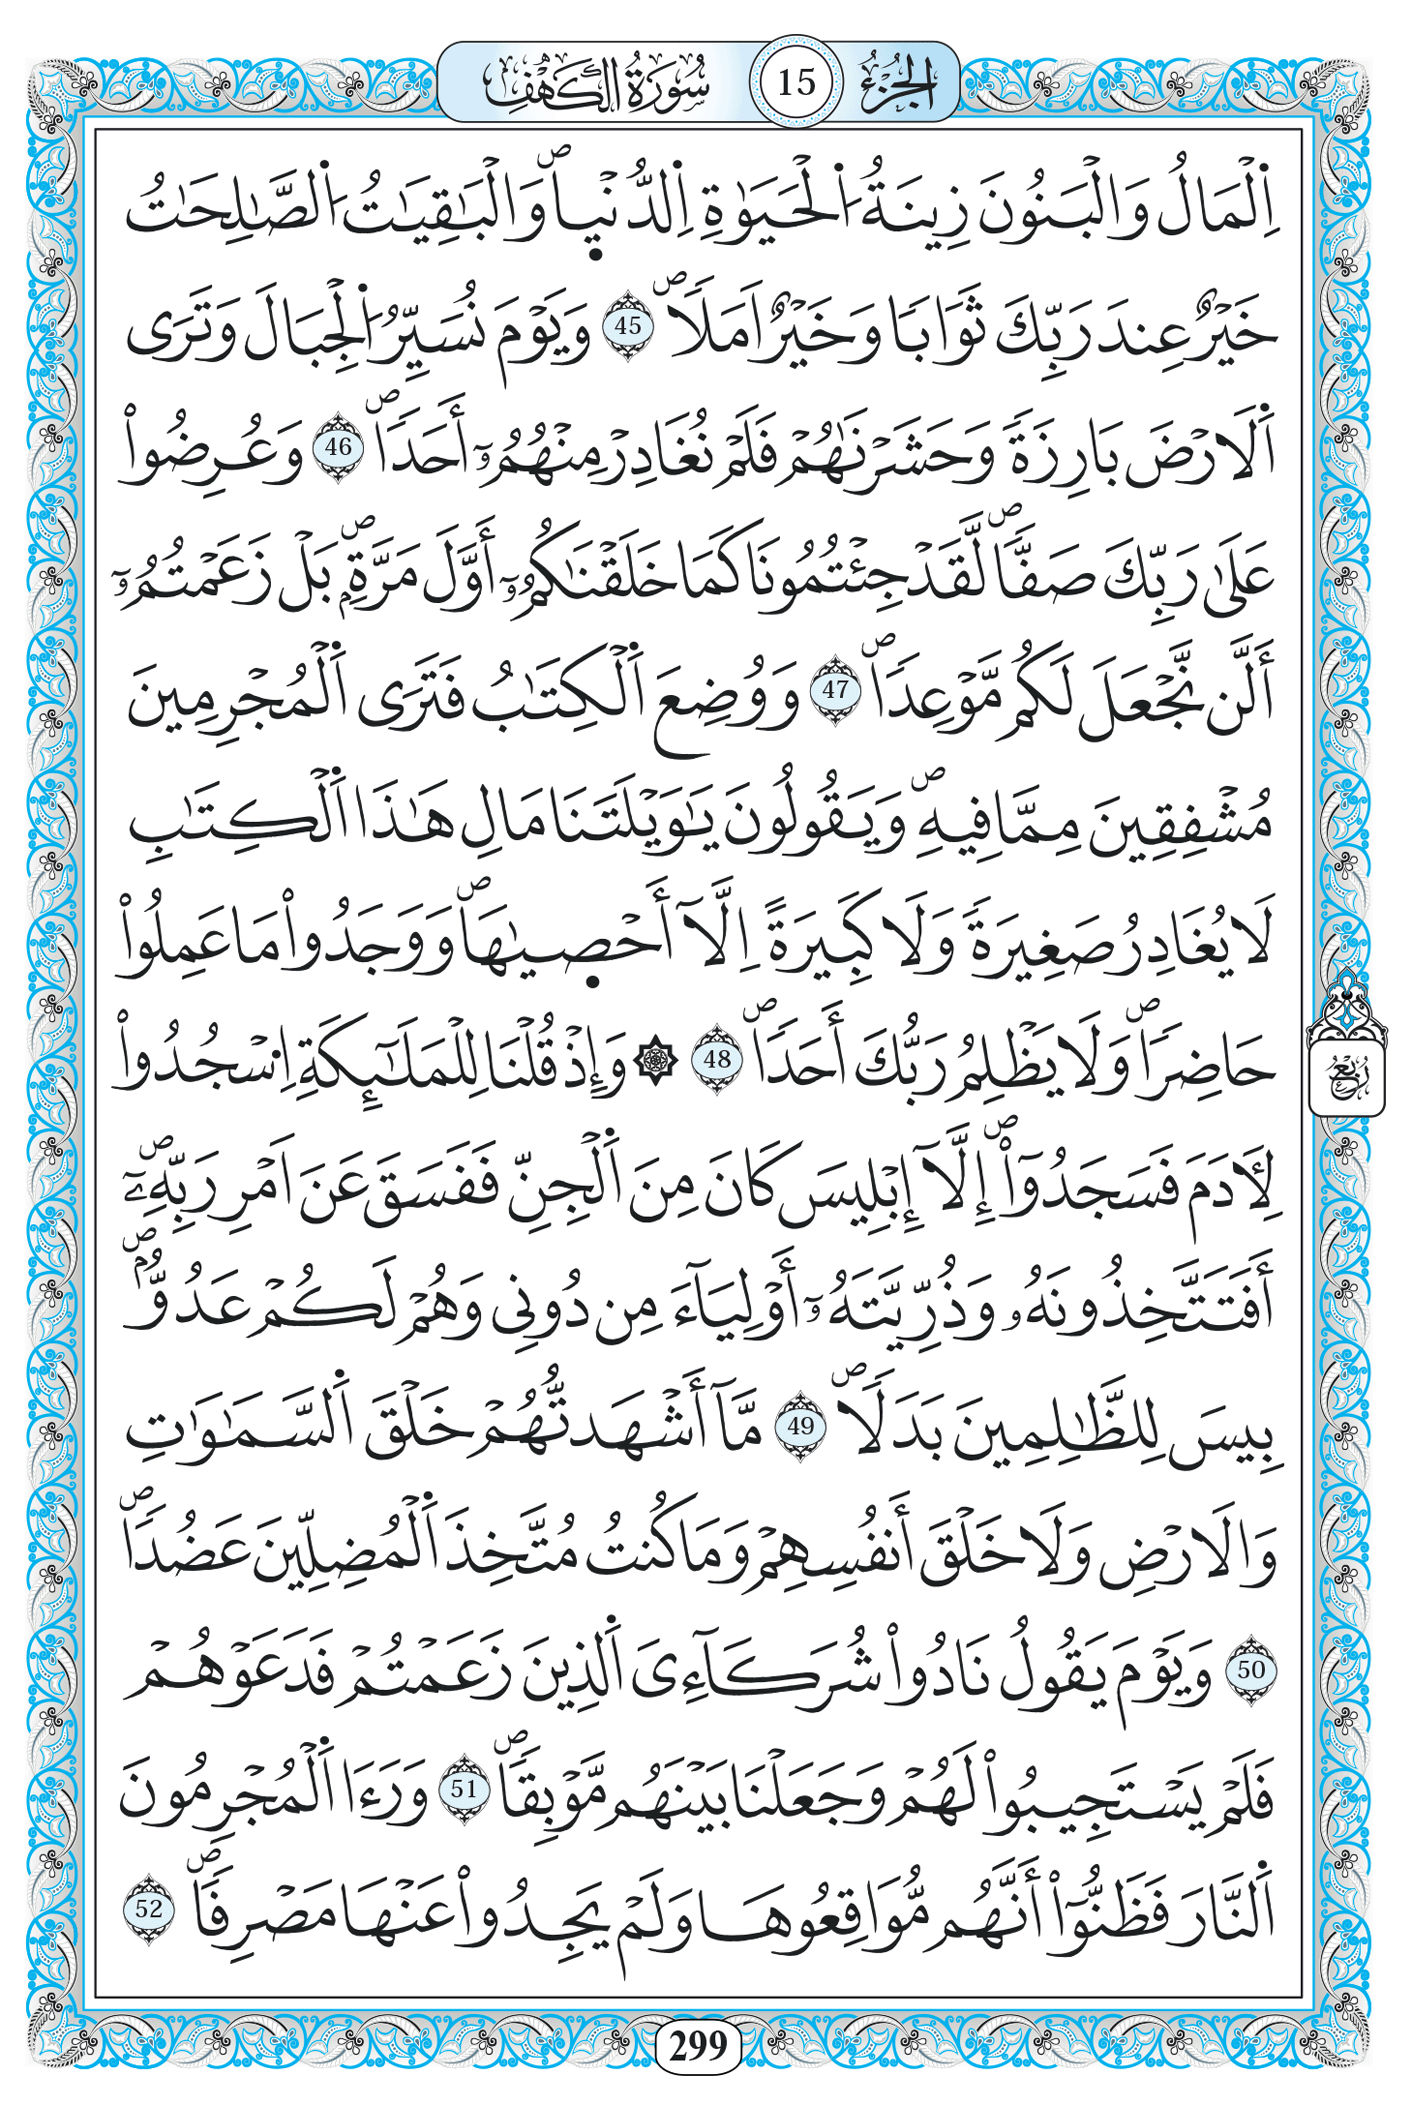 سُورَةُ الكَهْفِ 15 الجُزْءُ
اِ۬لْمَالُ وَالْبَنُونَ زِينَةُ اُ۬لْحَيَوٰةِ اِ۬لدُّنْي۪اۖ وَالْبَٰقِيَٰتُ اُ۬لصَّٰلِحَٰتُ
خَيْرٌ عِندَ رَبِّكَ ثَوَاباٗ وَخَيْرٌ اَمَلاٗۖ 45 وَيَوْمَ نُسَيِّرُ اُ۬لْجِبَالَ وَتَرَى
اَ۬لَارْضَ بَارِزَةٗ وَحَشَرْنَٰهُمْ فَلَمْ نُغَادِرْ مِنْهُمُۥٓ أَحَداٗۖ 46 وَعُرِضُواْ
عَلَىٰ رَبِّكَ صَفّاٗۖ لَّقَدْ جِئْتُمُونَا كَمَا خَلَقْنَٰكُمُۥٓ أَوَّلَ مَرَّةِۢۖ بَلْ زَعَمْتُمُۥٓ
أَلَّن نَّجْعَلَ لَكُم مَّوْعِداٗۖ 47 وَوُضِعَ اَ۬لْكِتَٰبُ فَتَرَى اَ۬لْمُجْرِمِينَ
مُشْفِقِينَ مِمَّا فِيهِۖ وَيَقُولُونَ يَٰوَيْلَتَنَا مَالِ هَٰذَا اَ۬لْكِتَٰبِ
لَا يُغَادِرُ صَغِيرَةٗ وَلَا كَبِيرَةً اِلَّآ أَحْص۪يٰهَاۖ وَوَجَدُواْ مَا عَمِلُواْ
حَاضِراٗۖ وَلَا يَظْلِمُ رَبُّكَ أَحَداٗۖ 48 ۞ وَإِذْ قُلْنَا لِلْمَلَٰٓئِكَةِ اِ۟سْجُدُواْ
لِأٓدَمَ فَسَجَدُوٓاْۖ إِلَّآ إِبْلِيسَ كَانَ مِنَ اَ۬لْجِنِّ فَفَسَقَ عَنَ اَمْرِ رَبِّهِۦٓۖ
أَفَتَتَّخِذُونَهُۥ وَذُرِّيَّتَهُۥٓ أَوْلِيَآءَ مِن دُونِي وَهُمْ لَكُمْ عَدُوُّۢۖ
بِيسَ لِلظَّٰلِمِينَ بَدَلاٗۖ 49 مَّآ أَشْهَدتُّهُمْ خَلْقَ اَ۬لسَّمَٰوَٰتِ
وَالَارْضِ وَلَا خَلْقَ أَنفُسِهِمْ وَمَا كُنتُ مُتَّخِذَ اَ۬لْمُضِلِّينَ عَضُداٗۖ
50 وَيَوْمَ يَقُولُ نَادُواْ شُرَكَآءِىَ اَ۬لذِينَ زَعَمْتُمْ فَدَعَوْهُمْ
فَلَمْ يَسْتَجِيبُواْ لَهُمْ وَجَعَلْنَا بَيْنَهُم مَّوْبِقاٗۖ 51 وَرَءَا اَ۬لْمُجْرِمُونَ
اَ۬لنَّارَ فَظَنُّوٓاْ أَنَّهُم مُّوَاقِعُوهَا وَلَمْ يَجِدُواْ عَنْهَا مَصْرِفاٗۖ 52
رُبُعْ
299